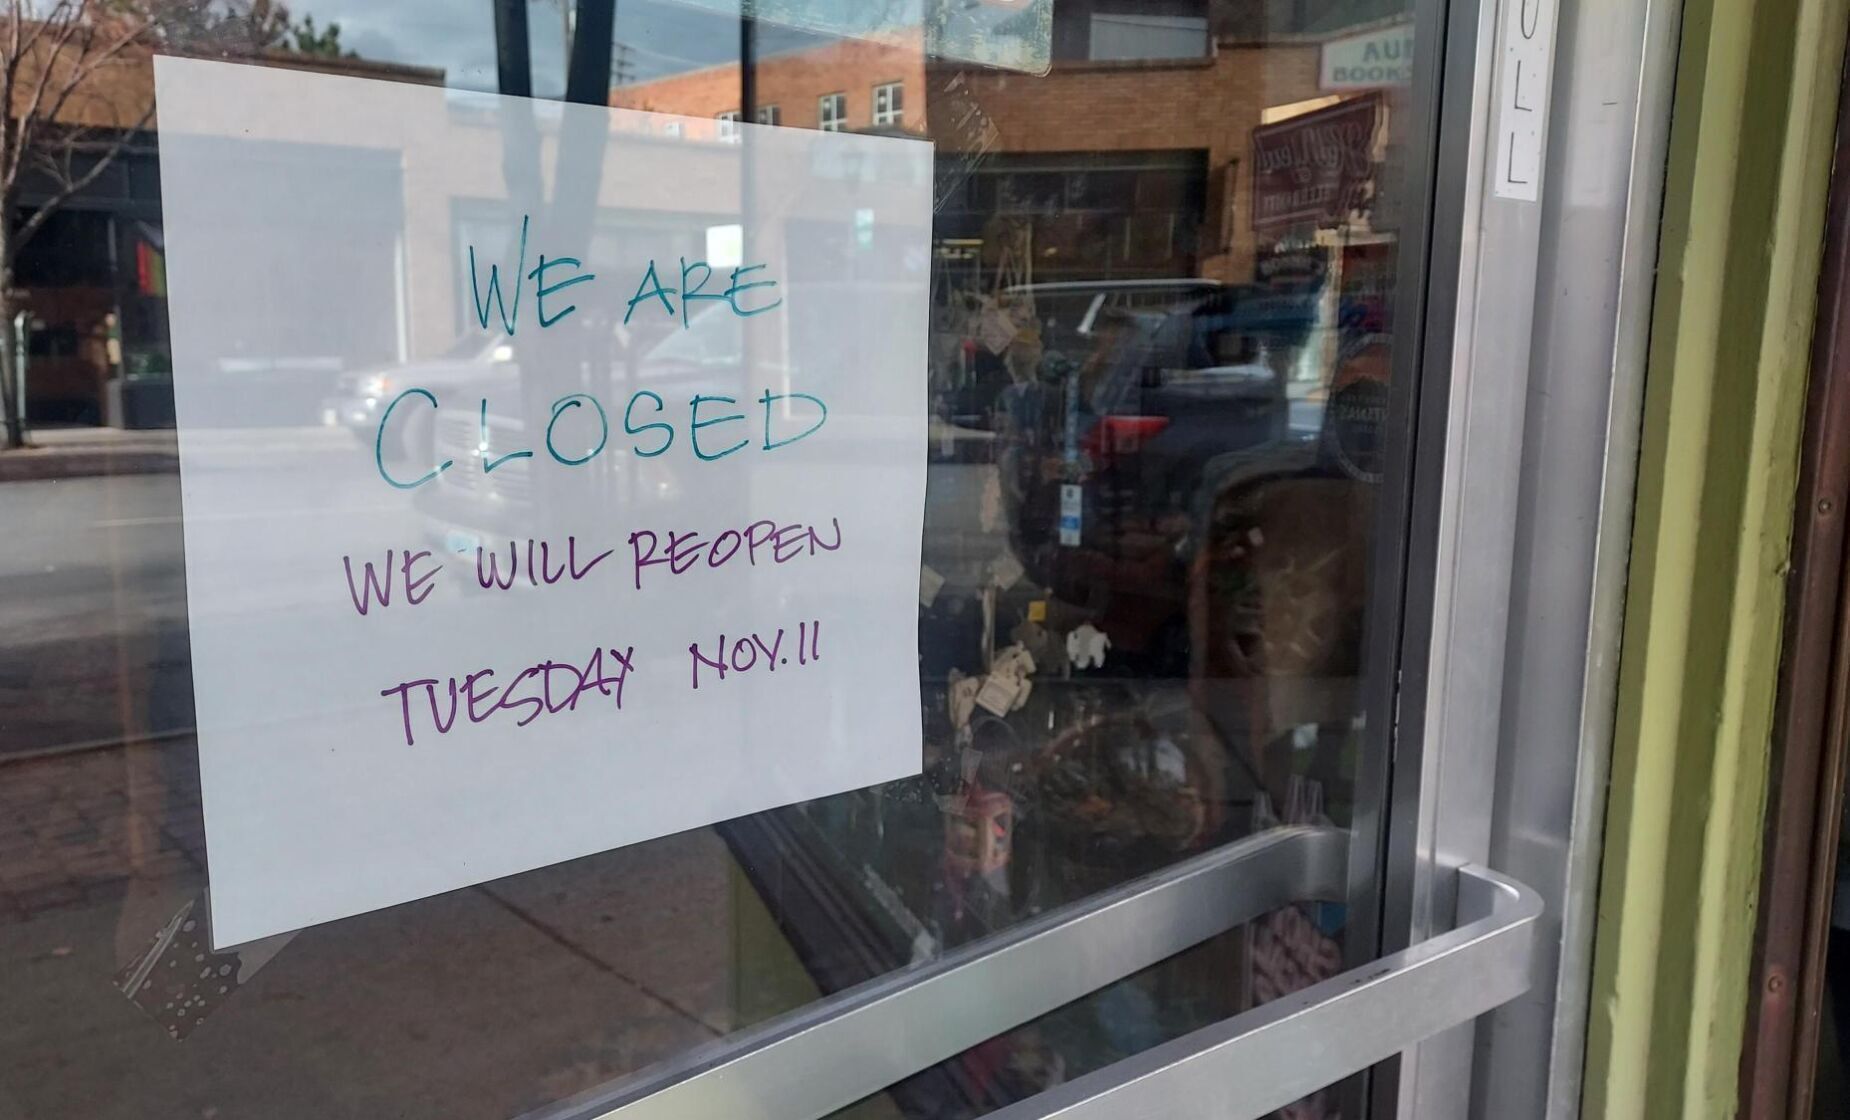 WE ARE
CLOSED
WE WILL REOPEN
TUESDAY NOV. 11
BOOK